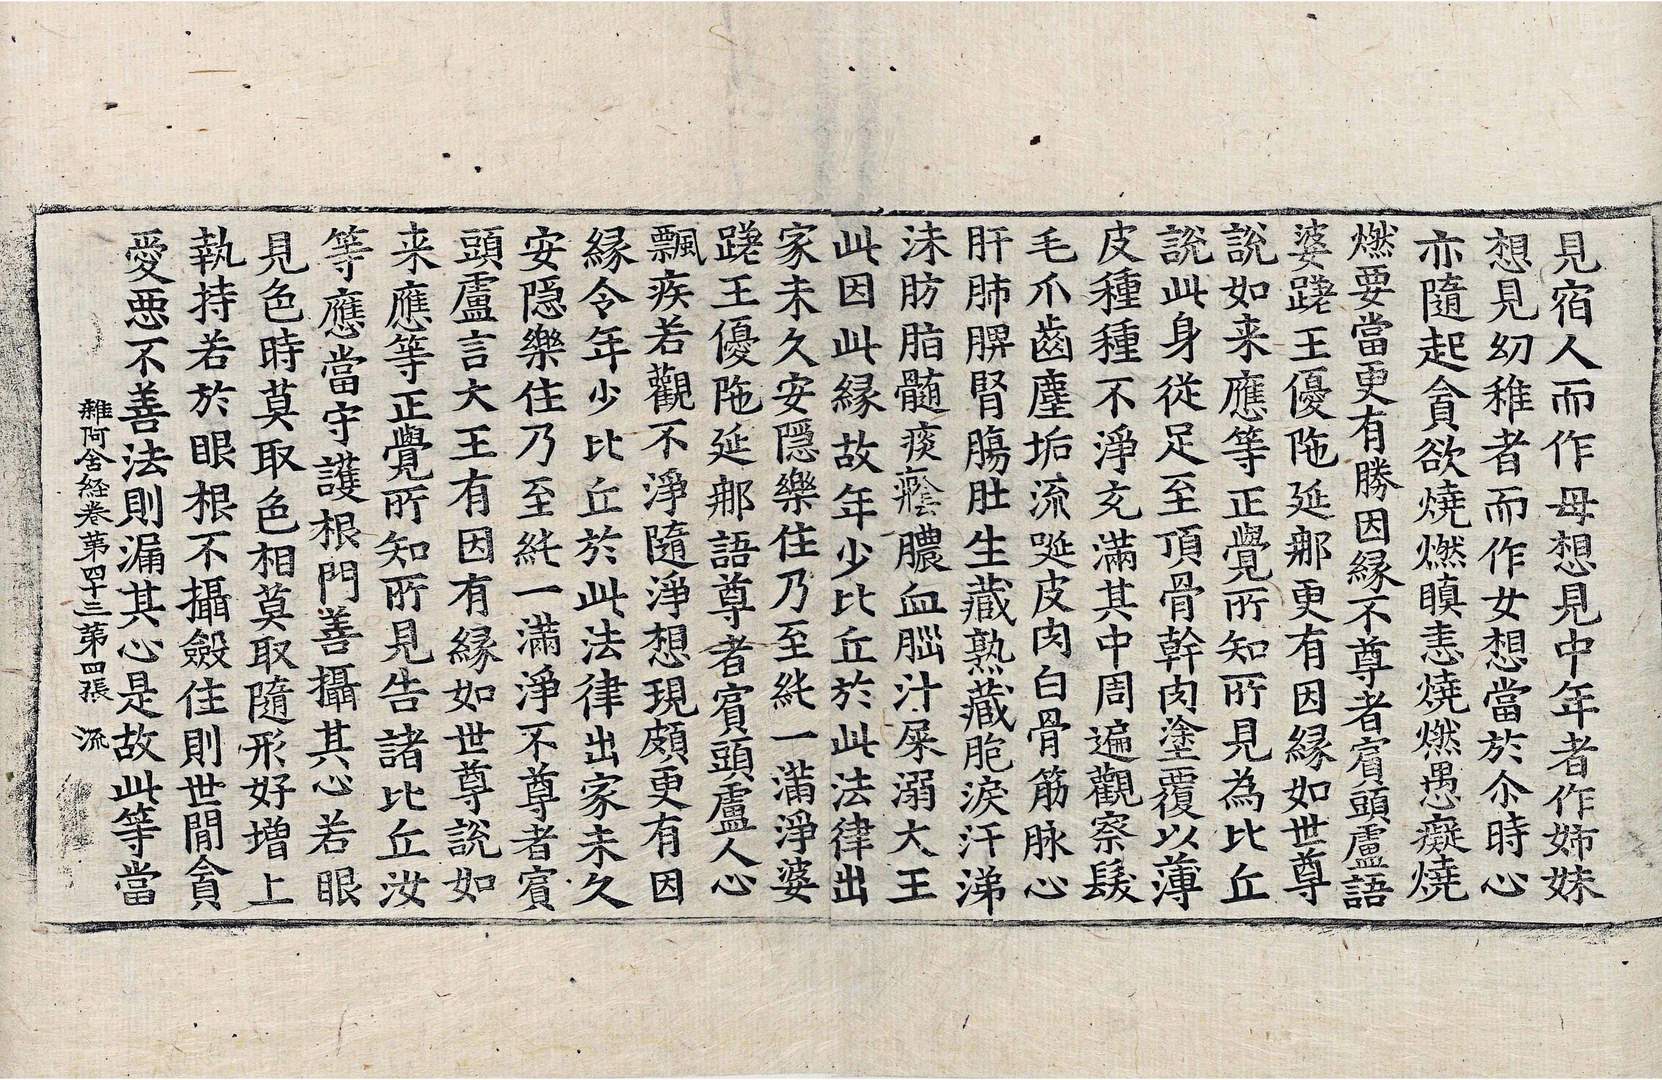 見宿人而作母想見中年者作姉妹
想見幼稚者而作女想當於尒時心
亦隨起貪欲燒燃瞋恚燒燃愚癡燒
燃要當更有勝因縁不尊者賓頭盧語
婆蹉王優陁延那更有因縁如世尊
說如来應等正覺所知所見為比丘
說此身從足至頂骨幹肉塗覆以薄
皮種種不淨充滿其中周遍觀察髮
毛爪齒塵垢流唌皮肉白骨筋脉心
肝肺脾腎腸肚生藏熟藏胞淚汗涕
沫肪脂髓痰癊膿血腦汁屎溺大王
此因此縁故年少比丘於此法律出
家未久安隱樂住乃至純一滿淨婆
蹉王優陁延那語尊者賓頭盧人心
飄疾若觀不淨隨淨想現頗更有因
縁令年少比丘於此法律出家未久
安隱樂住乃至純一滿淨不尊者賓
頭盧言大王有因有縁如世尊說如
来應等正覺所知所見告諸比丘汝
等應當守護根門善攝其心若眼
見色時莫取色相莫取隨形好增上
執持若於眼根不攝斂住則世間貪
愛悪不善法則漏其心是故此等當
雜阿含経卷第四十三第四張 流